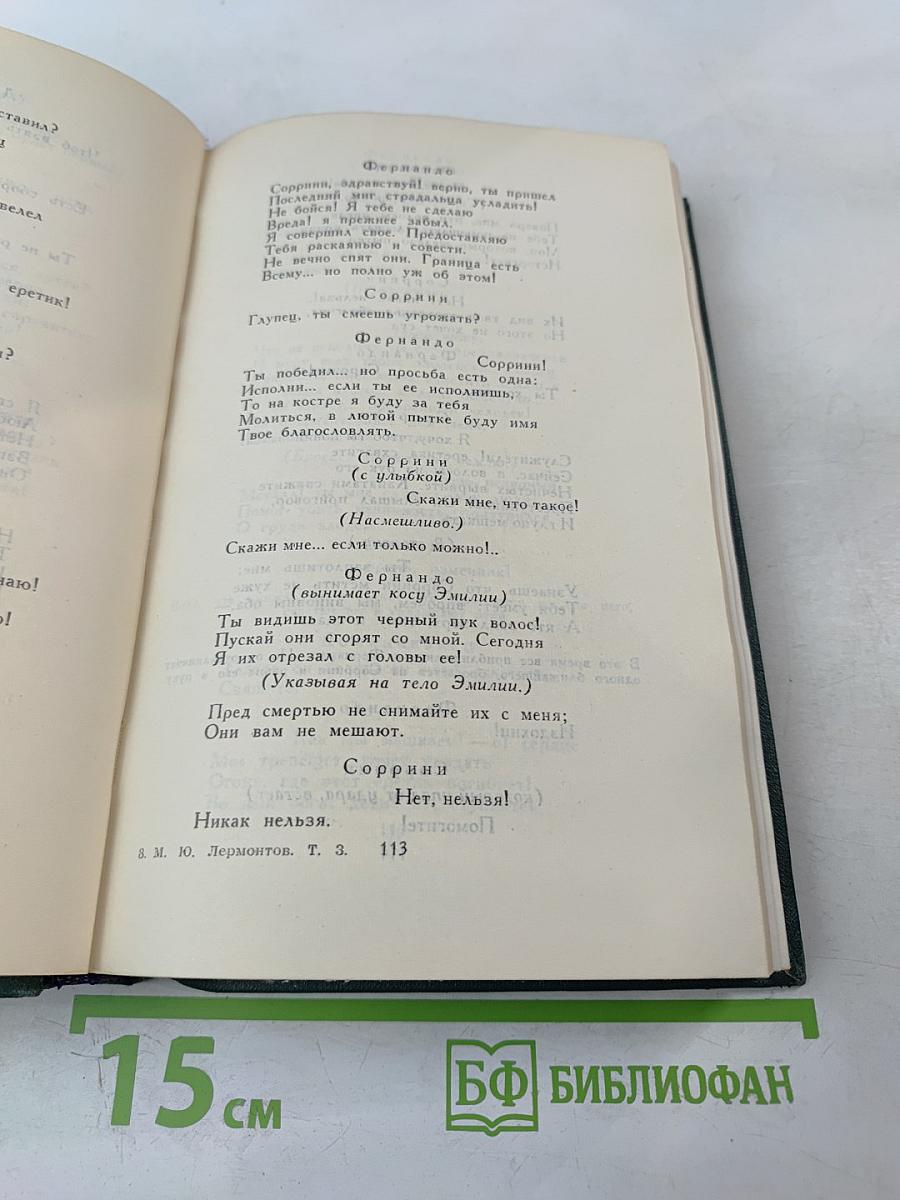 ставил?
велел
еретик!
?
наю!
о!
Фернандо
Соррини, здравствуй! верно, ты пришел
Последний миг страдальца усладить!
Не бойся! Я тебе не сделаю
Вреда! я прежнее забыл.
Я совершил свое. Предоставляю
Тебя раскаянью и совести.
Не вечно спят они. Граница есть
Всему... но полно уж об этом!
Соррини
Глупец, ты смеешь угрожать?
Фернандо
Соррини!
Ты победил... но просьба есть одна:
Исполни... если ты ее исполнишь,
То на костре я буду за тебя
Молиться, в лютой пытке буду имя
Твое благословлять.
Соррини
(с улыбкой)
Скажи мне, что такое!
(Насмешливо.)
Скажи мне... если только можно!..
Фернандо
(вынимает косу Эмилии)
Ты видишь этот черный пук волос!
Пускай они сгорят со мной. Сегодня
Я их отрезал с головы ее!
(Указывая на тело Эмилии.)
Пред смертью не снимайте их с меня;
Они вам не мешают.
Соррини
Нет, нельзя!
Никак нельзя.
8. М. Ю. Лермонтов. Т. 3. 113
15 см
БФ БИБЛИОФАН